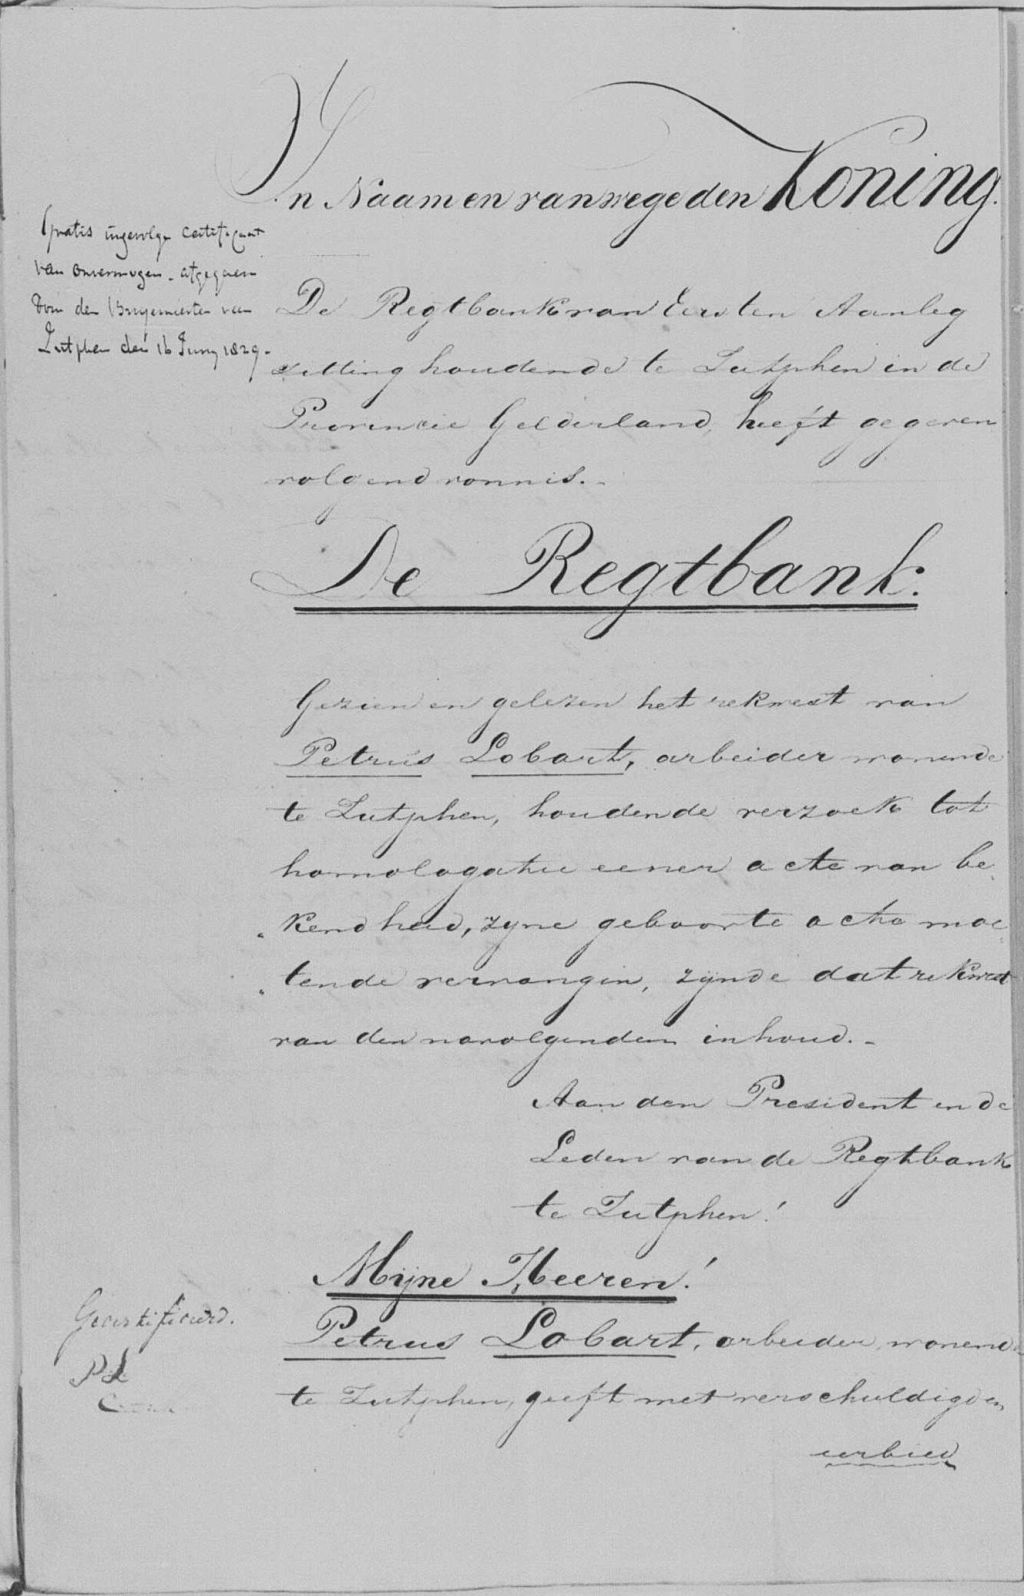 In Naam en van wege den Koning.
Gratis ingevolge certificaat
van onvermogen afgegeven
door den Burgemeester van
Zutphen den 16 Juny 1829.
De Regtbank van Eersten Aanleg
zitting houdende te Zutphen in de
Provincie Gelderland, heeft gegeven
volgend vonnis.
De Regtbank:
Gezien en gelezen het rekwest van
Petrus Lobart, arbeider wonende
te Zutphen, houdende verzoek tot
homologatie eener acte van be
kendheid, zyne geboorte acte moe
tende vervangen, zijnde dat rekwest
van den navolgenden inhoud.
Aan den President en de
Leden van de Regtbank
te Zutphen!
Mijne Heeren!
Gecertifieerd.
Petrus Lobart, arbeider, wonende
te Zutphen, geeft met verschuldigden
eerbied